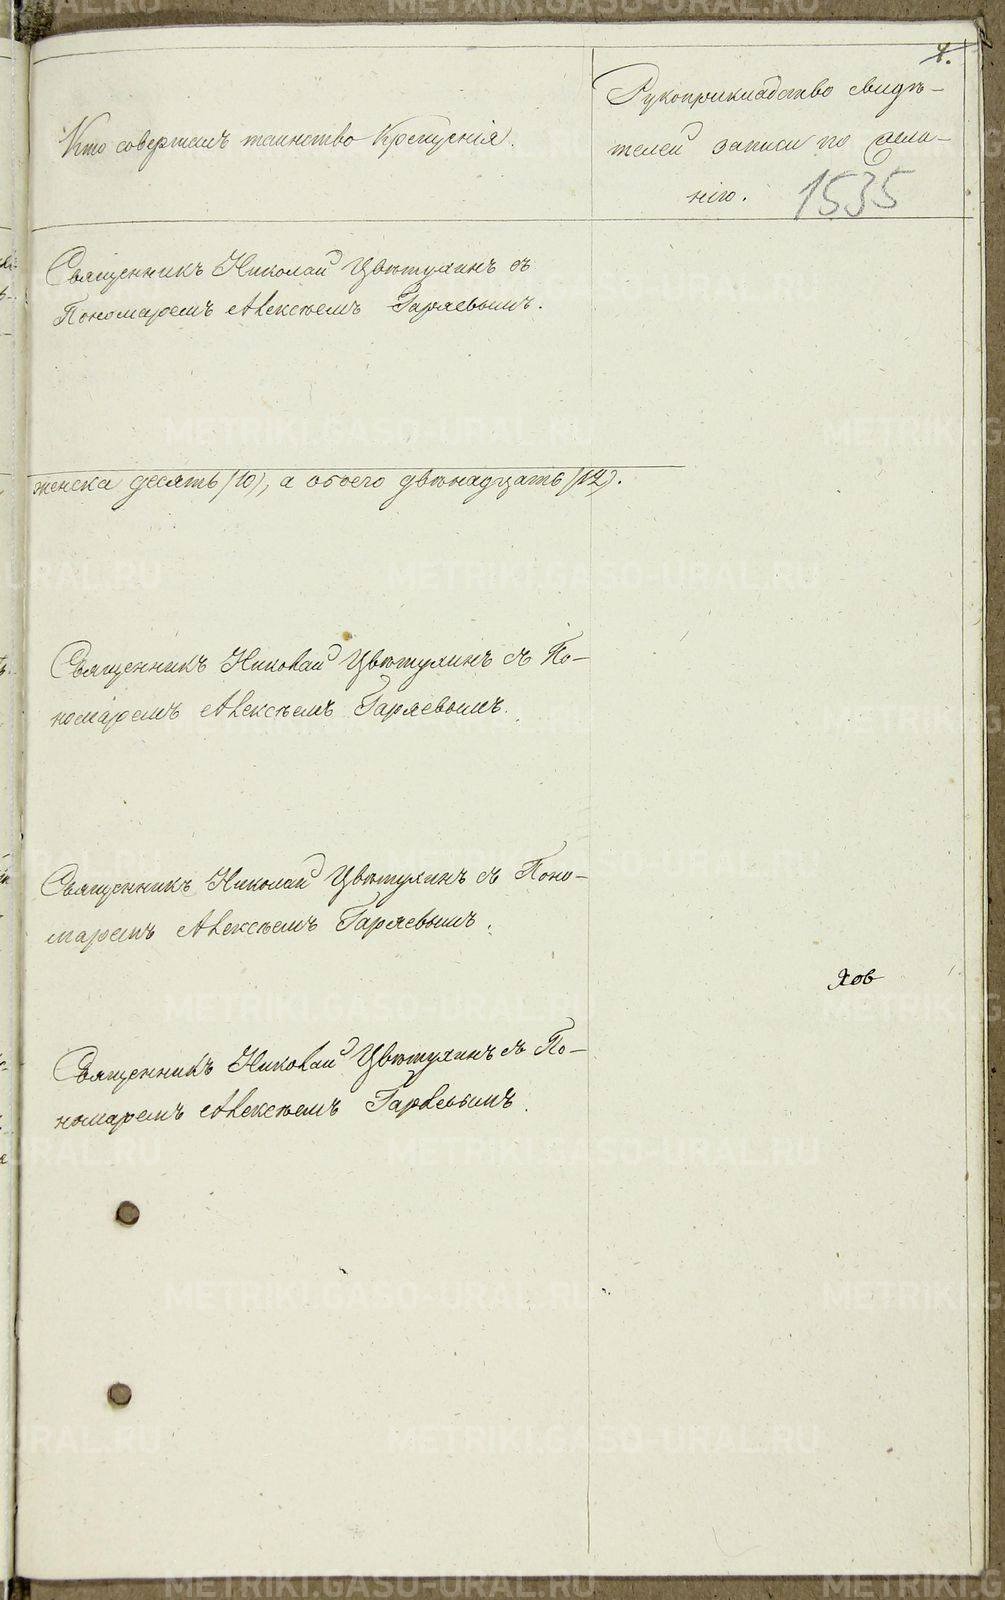 4.
Кто совершалъ таинство Крещенія.
Рукоприкладство свидѣ-
телей записи по жела-
нію.
1535
Священникъ Николай Цвѣтухинъ съ
Пономаремъ Алексѣемъ Гаряевымъ.
женска десять (10), а обоего двѣнадцать (12).
Священникъ Николай Цвѣтухинъ съ По-
номаремъ Алексѣемъ Гаряевымъ.
Священникъ Николай Цвѣтухинъ съ Поно-
маремъ Алексѣемъ Гаряевымъ.
хов
Священникъ Николай Цвѣтухинъ съ По-
номаремъ Алексѣемъ Гаряевымъ.
METRIKI.GASO-URAL.RU